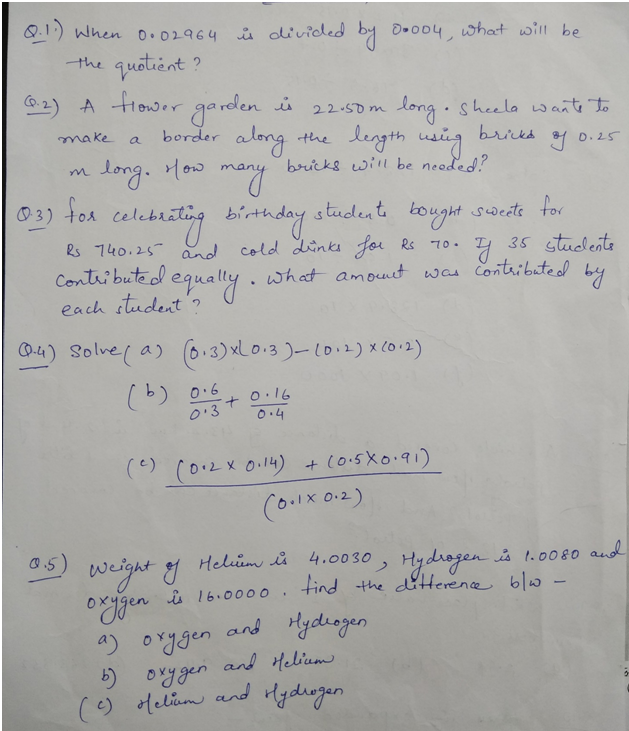 Q.1.) When 0.02964 is divided by 0.004, what will be
the quotient?
Q.2) A flower garden is 22.50m long. Sheela wants to
make a border along the length using bricks of 0.25
m long. How many bricks will be needed?
Q.3) for celebrating birthday students bought sweets for
Rs 740.25 and cold drinks for Rs 70. If 35 students
contributed equally. What amount was contributed by
each student?
Q.4) Solve (a) (0.3)x(0.3)-(0.2)x(0.2)
(b) 0.6/0.3 + 0.16/0.4
(c) (0.2 x 0.14) + (0.5x0.91)
(0.1x 0.2)
Q.5) Weight of Helium is 4.0030, Hydrogen is 1.0080 and
oxygen is 16.0000. find the difference b/w -
a) oxygen and Hydrogen
b) oxygen and Helium
(c) Helium and Hydrogen